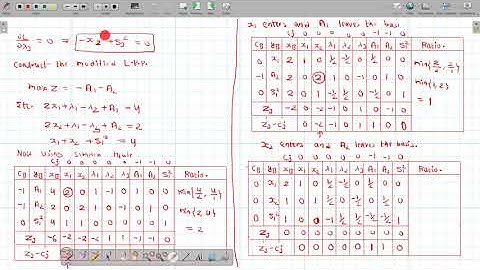 ∂L/∂λ3 = 0 ⇒ -x2 + S2² = 0
Construct the modified L.P.P.
max Z = -A1 - A2
2x1 + λ1 - λ2 + A1 = 4
2x2 + λ1 - λ3 + A2 = 2
x1 + x2 + S1² = 4
Now using simplex
Cj 0 0 0 0 0 -1 -1 0
CB YB XB x1 x2 λ1 λ2 λ3 A1 A2 S1² Ratio.
-1 A1 4 2 0 1 -1 0 1 0 0
-1 A2 2 0 2 1 0 -1 0 1 0
0 S1² 4 1 1 0 0 0 0 0 1
min{4/2, 4/1}
min{2,4}
= 2
Zj -6 -2 -2 -2 1 1 -1 -1 0
Zj-Cj
x1 enters and A1 leaves the basis.
CB YB XB x1 x2 λ1 λ2 λ3 A1 A2 S1² Ratio.
0 x1 2 1 0 ½ -½ 0 ½ 0 0
-1 A2 2 0 2 1 0 -1 0 1 0
0 S1² 2 0 1 -½ ½ 0 -½ 0 1
min{2/2, 2/1}
min{1,2}
= 1
Zj -2 0 -2 -1 0 1 0 -1 0
Zj-Cj -2 0 -2 -1 0 1 1 0 0
x2 enters and A2 leaves the basis.
Cj 0 0 0 0 0 -1 -1 0
CB YB XB x1 x2 λ1 λ2 λ3 A1 A2 S1² Ratio.
0 x1 2 1 0 ½ -½ 0 ½ 0 0
0 x2 1 0 1 ½ 0 -½ 0 ½ 0
0 S1² 1 0 0 -1 ½ ½ -½ -½ 1
Zj 0 0 0 0 0 0 0 0 0
Zj-Cj 0 0 0 0 0 0 1 1 0